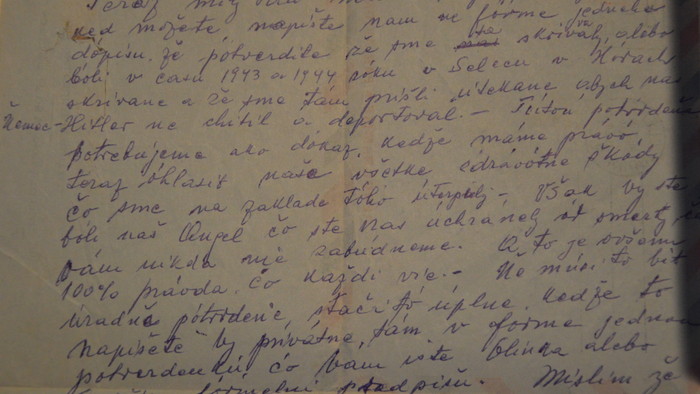 Teraz môj
keď možete napište nam ve forme jedneho
dópisu, že pótverdite že sme sa skrivali, alebo
bóli v času 1943 a 1944 róku v Selecu v Hórach
skrivane a že sme tam prišli utekane abych nas
Nemec - Hitler ne chitil a deportoval. - Tótou pótvrdenu
potrebujeme ako dókaz, kedže máme právo,
teraz ohlasit naše všetke zdravótne škódy
čó sme na zaklade tóho uterpeli - Však vy ste
bóli naš Angel čó ste nas uchráneli od smerty
vám nikda nie zabudneme. A tó je ovšem
100% právda čó každi vie. - Ne musi tó bit
úradne pótvrdenie, stači tó uplne. Kedže tó
napišete vy privátne, tám v forme jednoho
potverdenu čó Vam iste blinka alebo
podpisu. Mislim že